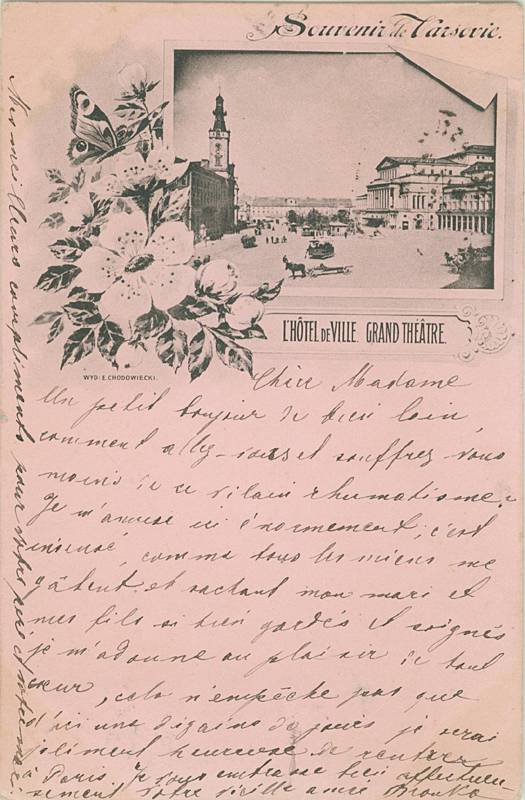 Souvenir de Varsovie.
L'HÔTEL DE VILLE. GRAND THÉÂTRE.
WYD: E. CHODOWIECKI.
Cher Madame
Un petit bonjour de bien loin,
comment allez-vous et souffrez vous
moins de ce vilain rhumatisme.
Je m'amuse ici énormement, c'est
insensé, comme tous les miens me
gâtent. et sachant mon mari et
mes fils si bien gardés et soignés
je m'adonne au plaisir de tout
cœur, cela n'empêche pas que
d'ici une dizaine de jours je serai
joliment heureuse de rentrer
à Paris. Je vous embrasse bien affectueu
sement Votre vieille amie
Mes meilleurs compliments pour votre père et votre mari